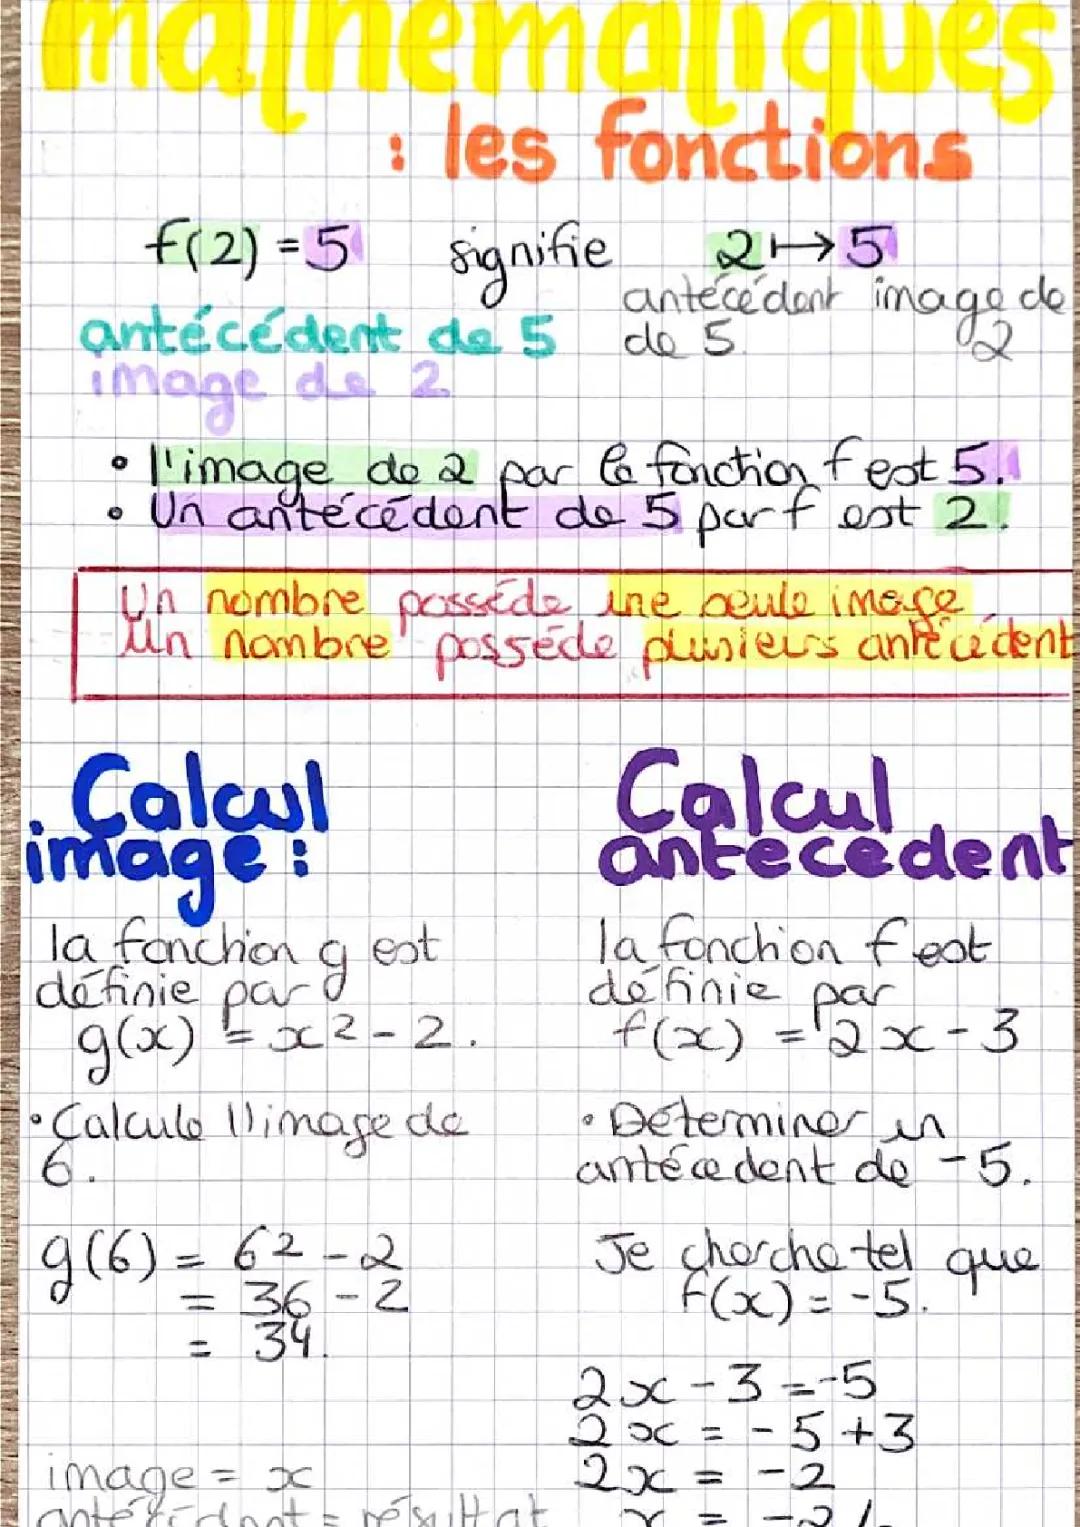 mathématiques
: les fonctions
f(2) = 5 signifie 2 ↦ 5
antécédent de 5
image de 2
antécédent image de
de 5. 2
• l'image de 2 par la fonction f est 5.
• Un antécédent de 5 par f est 2.
Un nombre posséde une seule image.
Un nombre posséde plusieurs antécédent
Calcul
image :
la fonction g est
définie par
g(x) = x² - 2.
• Calcule l'image de
6.
g(6) = 6² - 2
= 36 - 2
= 34.
image = x
antécédent = résultat
Calcul
antecedent
la fonction f est
définie par
f(x) = 2x - 3
• Déterminer un
antécedent de -5.
Je cherche tel que
f(x) = -5.
2x - 3 = -5
2x = -5 + 3
2x = -2
x = -2/